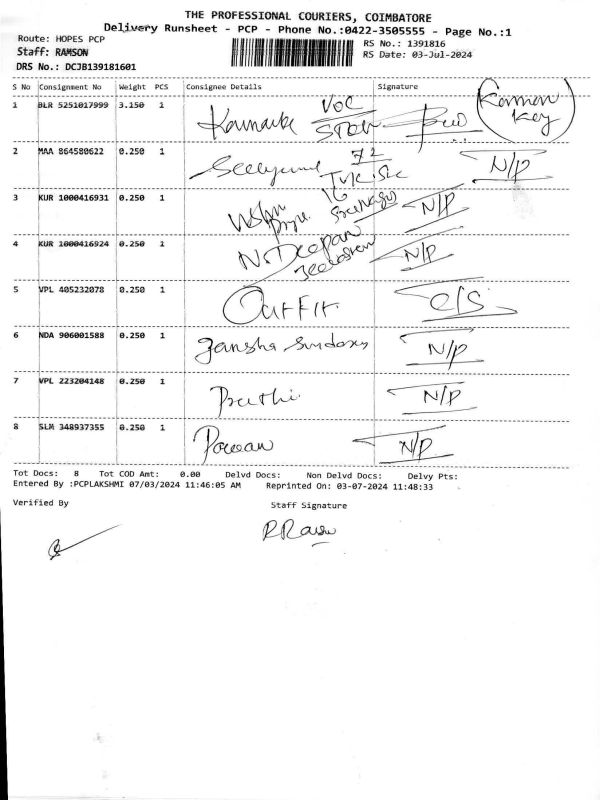 THE PROFESSIONAL COURIERS, COIMBATORE
Delivery Runsheet - PCP - Phone No.:0422-3505555 - Page No.:1
Route: HOPES PCP
RS No.: 1391816
Staff: RAMSON
RS Date: 03-Jul-2024
DRS No.: DCJB139181601
S No Consignment No Weight PCS Consignee Details Signature
1 BLR 5251017999 3.150 1
2 MAA 864580622 0.250 1 72 N/P
3 KUR 1000416931 0.250 1 16 N/P
4 KUR 1000416924 0.250 1 N. Deepan N/P
5 VPL 405232078 0.250 1 OUTFIT C/S
6 NDA 906001588 0.250 1 N/P
7 VPL 223204148 0.250 1 Preethi N/P
8 SLM 348937355 0.250 1 Powan N/P
Tot Docs: 8 Tot COD Amt: 0.00 Delvd Docs: Non Delvd Docs: Delvy Pts:
Entered By :PCPLAKSHMI 07/03/2024 11:46:05 AM Reprinted On: 03-07-2024 11:48:33
Verified By Staff Signature